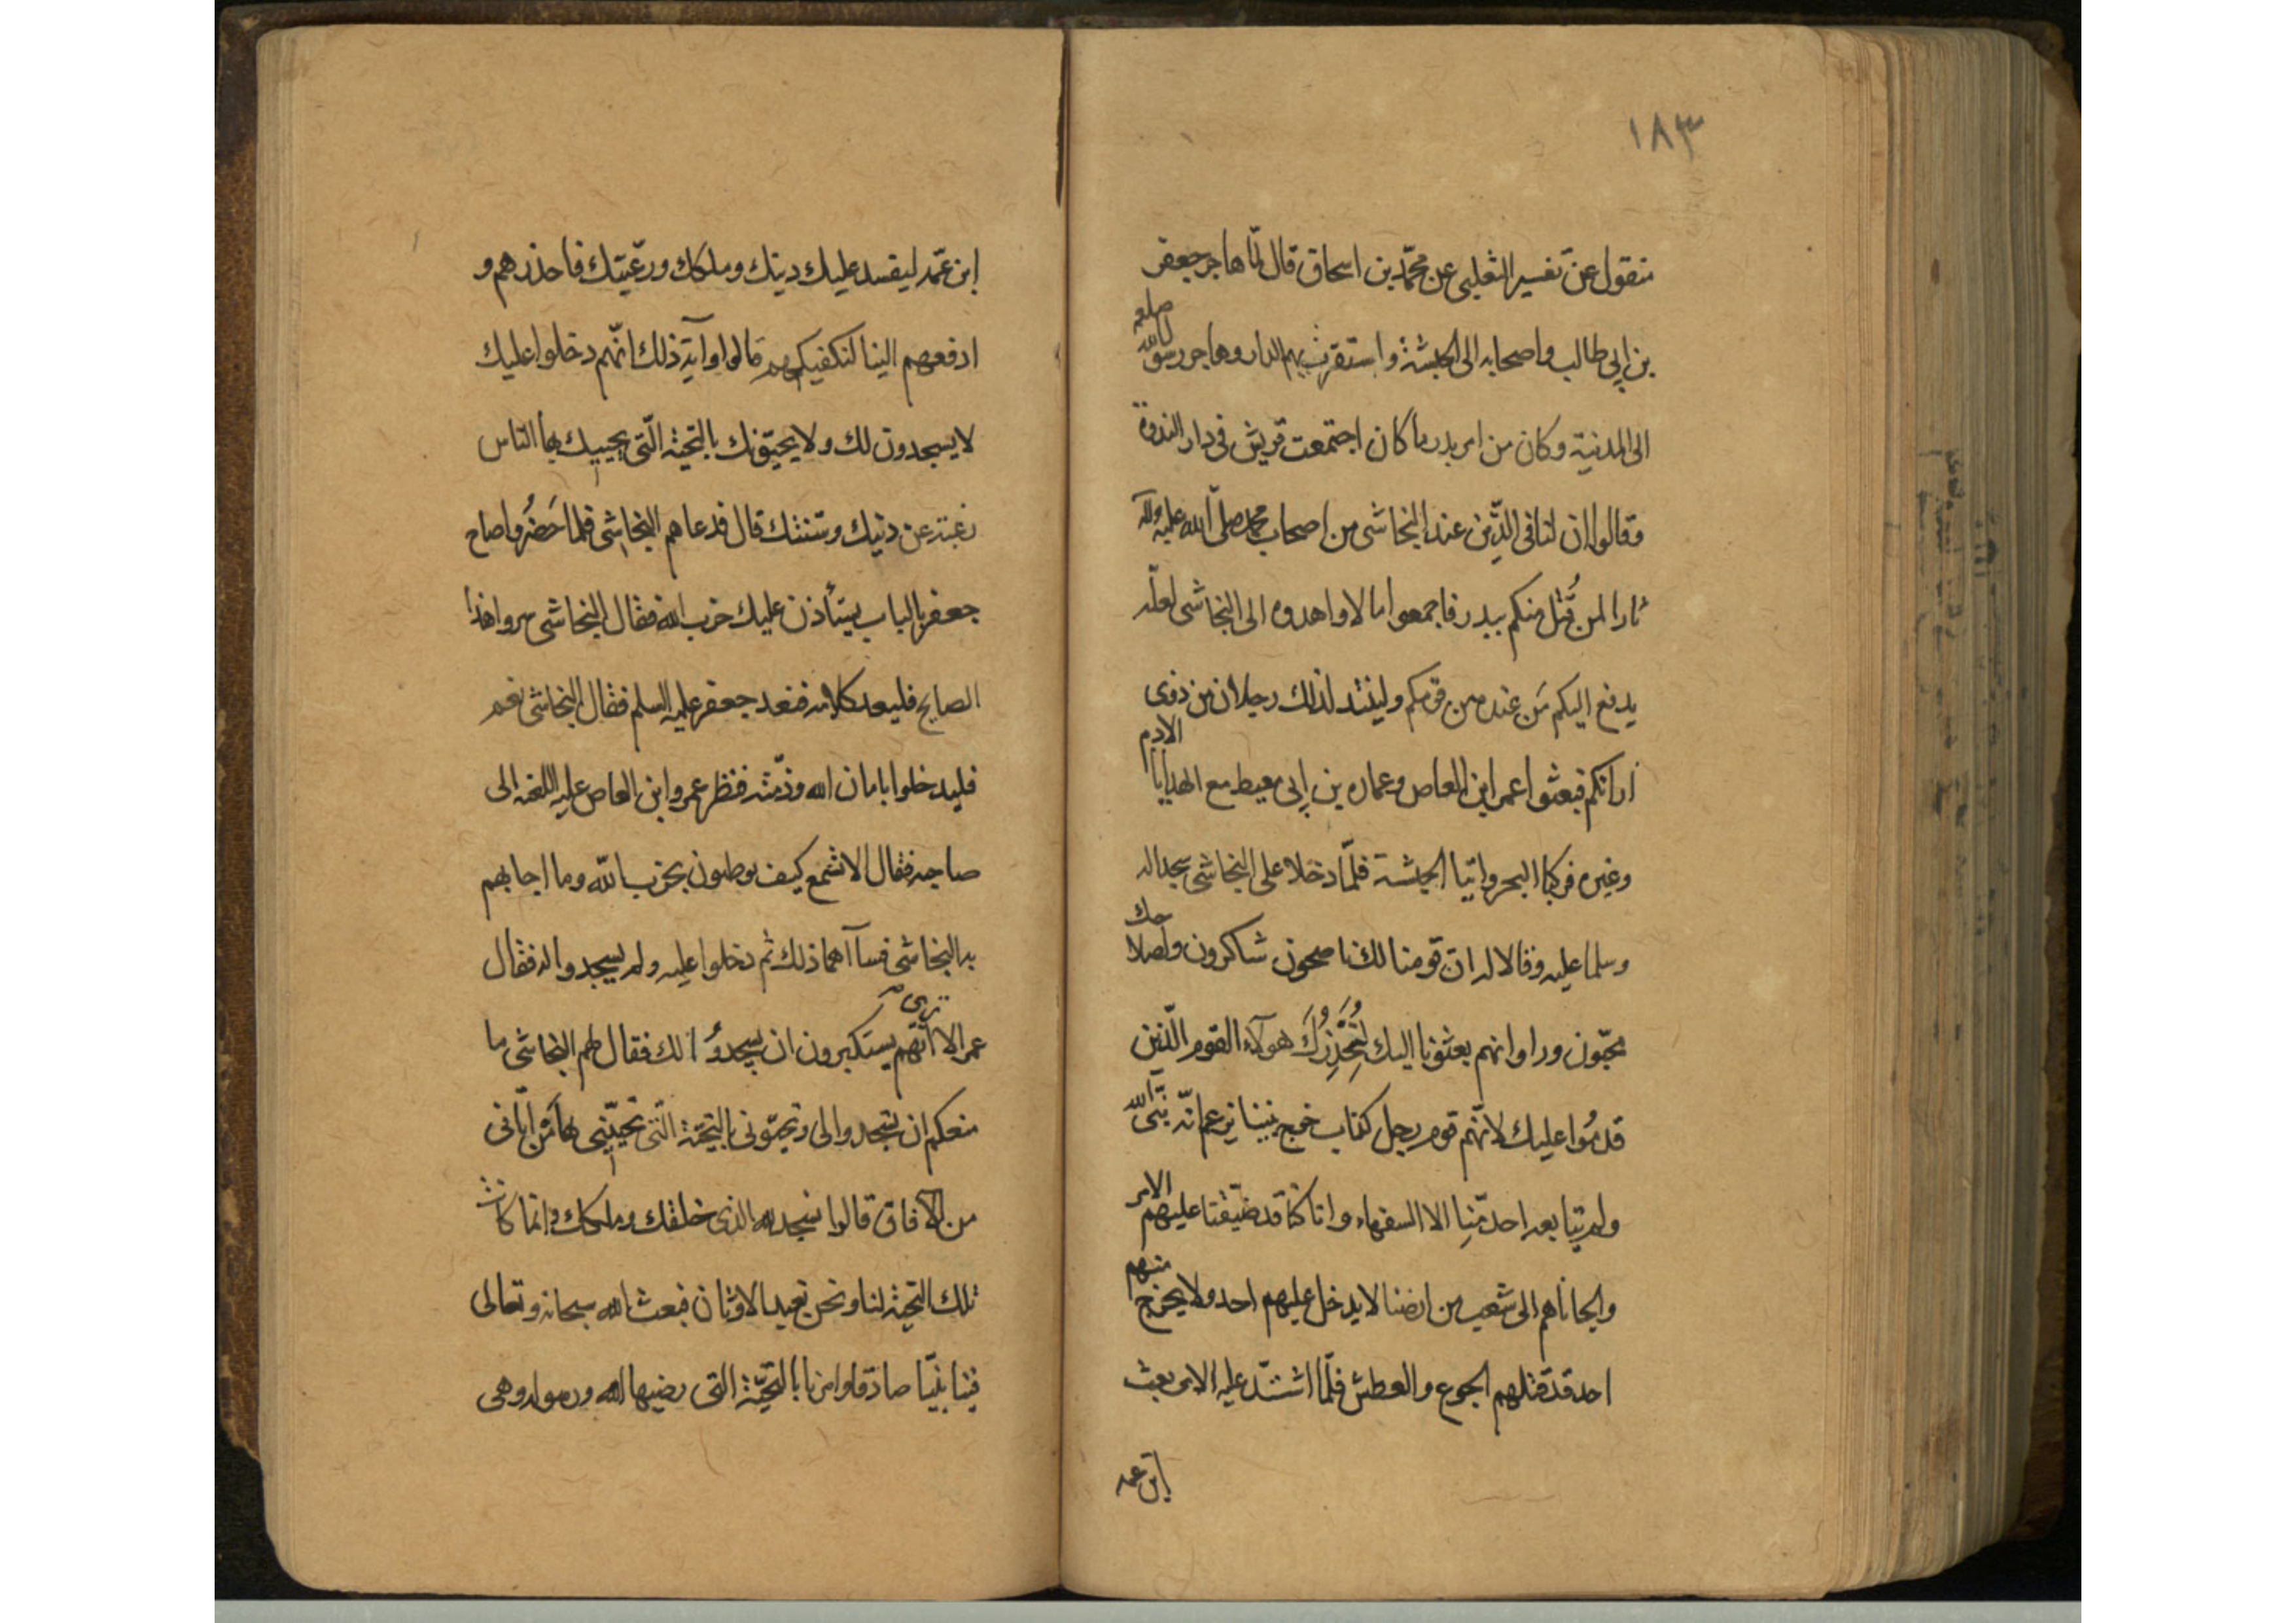 ١٨٣
منقول عن تفسير الثعلبى عن محمّد بن اسحاق قال لمّا هاجر جعفر
بن ابى طالب واصحابه الى الحبشة واستقرت بهم الدار وهاجر رسول الله صلعم
الى المدنية وكان من امر بدر ما كان اجتمعت قريش فى دار الندوة
وقالوا ان لنا فى الّذين عند النجاشى من اصحاب محمد صلّى الله عليه وآله
ثارا لمن قُتل منكم ببدر فاجمعوا امالا واهدوه الى النجاشى لعلّه
يدفع اليكم مَن عنده من قومكم ولينتدب لذلك رجلان من ذوى
ارائكم فبعثوا عمر ابن العاص وعماره بن ابى معيط مع الهدايا الادم
وغيره فركبا البحر واتيا الحبشة فلمّا دخلا على النجاشى سجدا له
وسلما عليه وقالا له انّ قومنا لك ناصحون شاكرون ولصلاحك
محبّون وراوا انهم بعثونا اليك لنُحَذِّرُكَ هولاء القوم الّذين
قدمُوا عليك لانّهم قوم رجل كذاب خرج بيننا يزعم انّه نبىّ الله
ولم يتبا بعه احد مّنِا الا السفهاء وانا كنّا قد ضيّقنا عليهم الامر
والجاناهم الى شعب من ارضنا لا يدخل عليهم احد ولا يخرج منهم
احد قد قتلهم الجوع والعطش فلمّا اشتدّ عليه الامر بعث
ابن عمه
ابن عمّه ليفسد عليك دينك وملكك ورعّيتك فاحذرهم و
ادفعهم الينا لنكفيكهم قالوا وآية ذلك انّهم دخلوا عليك
لا يسجدون لك ولا يحيّونك بالتحية الّتى يحييك بها الناس
رغبة عن دينك وسنتك قال فدعاهم النجاشى فلما حَضرُوا صاح
جعفر بالباب يستأذن عليك حزب الله فقال النجاشى مروا هذا
الصايح فليعد كلامه ففعد جعفر عليه السلم فقال النجاشى نعم
فليدخلوا بامان الله وذمّته فنظر عمرو ابن العاص عليه اللعنه الى
صاحبه فقال الا تسمع كيف يوطنون بحزب الله وما اجابهم
به النجاشى فساآهما ذلك ثم دخلوا عليه ولم يسجدوا له فقال
عمر الا ترى انّهم يستكبرون ان يسجدوُا لك فقال لهم النجاشى ما
منعكم ان تسجدوا لى وتحيّونى بالتحيّة الّتى تحيّينى بها مَن اتانى
من الآفاق قالوا نسجد لله الذى خلقك وملكك وانما كانت
تلك التحيّة لنا ونحن نعبد الاوثان فبعث الله سبحانه وتعالى
فينا نبيّا صادقا وامرنا بالتحيّة التى رضيها الله ورسوله وهى